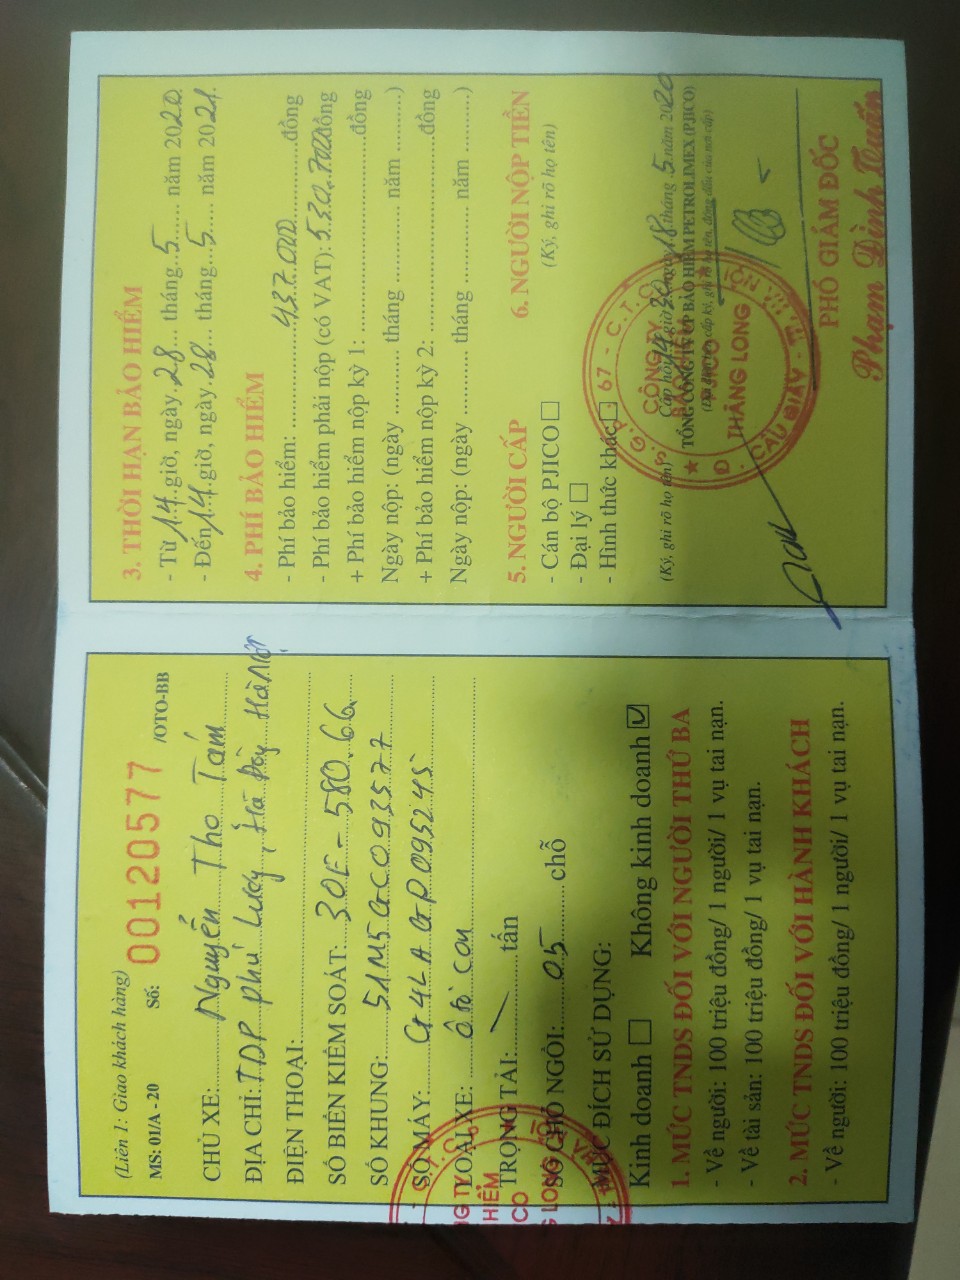 (Liên 1: Giao khách hàng)
MS: 01/A - 20 Số: 00120577 /OTO-BB
CHỦ XE: Nguyễn Thọ Tám
ĐỊA CHỈ: TDP Phú Lương, Hà Đông Hà Nội
ĐIỆN THOẠI:
SỐ BIỂN KIỂM SOÁT: 30E - 580.66
SỐ KHUNG: 51M5GC093577
SỐ MÁY: G4LAGP095245
LOẠI XE: Ô tô con
TRỌNG TẢI: tấn
SỐ CHỖ NGỒI: 05 chỗ
MỤC ĐÍCH SỬ DỤNG:
Kinh doanh ☐ Không kinh doanh ☑
1. MỨC TNDS ĐỐI VỚI NGƯỜI THỨ BA
- Về người: 100 triệu đồng/ 1 người/ 1 vụ tai nạn.
- Về tài sản: 100 triệu đồng/ 1 vụ tai nạn.
2. MỨC TNDS ĐỐI VỚI HÀNH KHÁCH
- Về người: 100 triệu đồng/ 1 người/ 1 vụ tai nạn.
3. THỜI HẠN BẢO HIỂM
- Từ 14 giờ, ngày 28 tháng 5 năm 2020
- Đến 14 giờ, ngày 28 tháng 5 năm 2021.
4. PHÍ BẢO HIỂM
- Phí bảo hiểm: 437.000 đồng
- Phí bảo hiểm phải nộp (có VAT): 530.700 đồng
+ Phí bảo hiểm nộp kỳ 1: đồng
Ngày nộp: (ngày tháng năm )
+ Phí bảo hiểm nộp kỳ 2: đồng
Ngày nộp: (ngày tháng năm )
5. NGƯỜI CẤP
- Cán bộ PJICO ☐
- Đại lý ☐
- Hình thức khác ☐
(Ký, ghi rõ họ tên)
6. NGƯỜI NỘP TIỀN
(Ký, ghi rõ họ tên)
Cấp hồi 14 giờ 30 ngày 18 tháng 5 năm 2020
TỔNG CÔNG TY CP BẢO HIỂM PETROLIMEX (PJICO)
CÔNG TY
BẢO HIỂM
PJICO
THĂNG LONG
Q. CẦU GIẤY - TP. HÀ NỘI
PHÓ GIÁM ĐỐC
Phạm Đình Tuấn